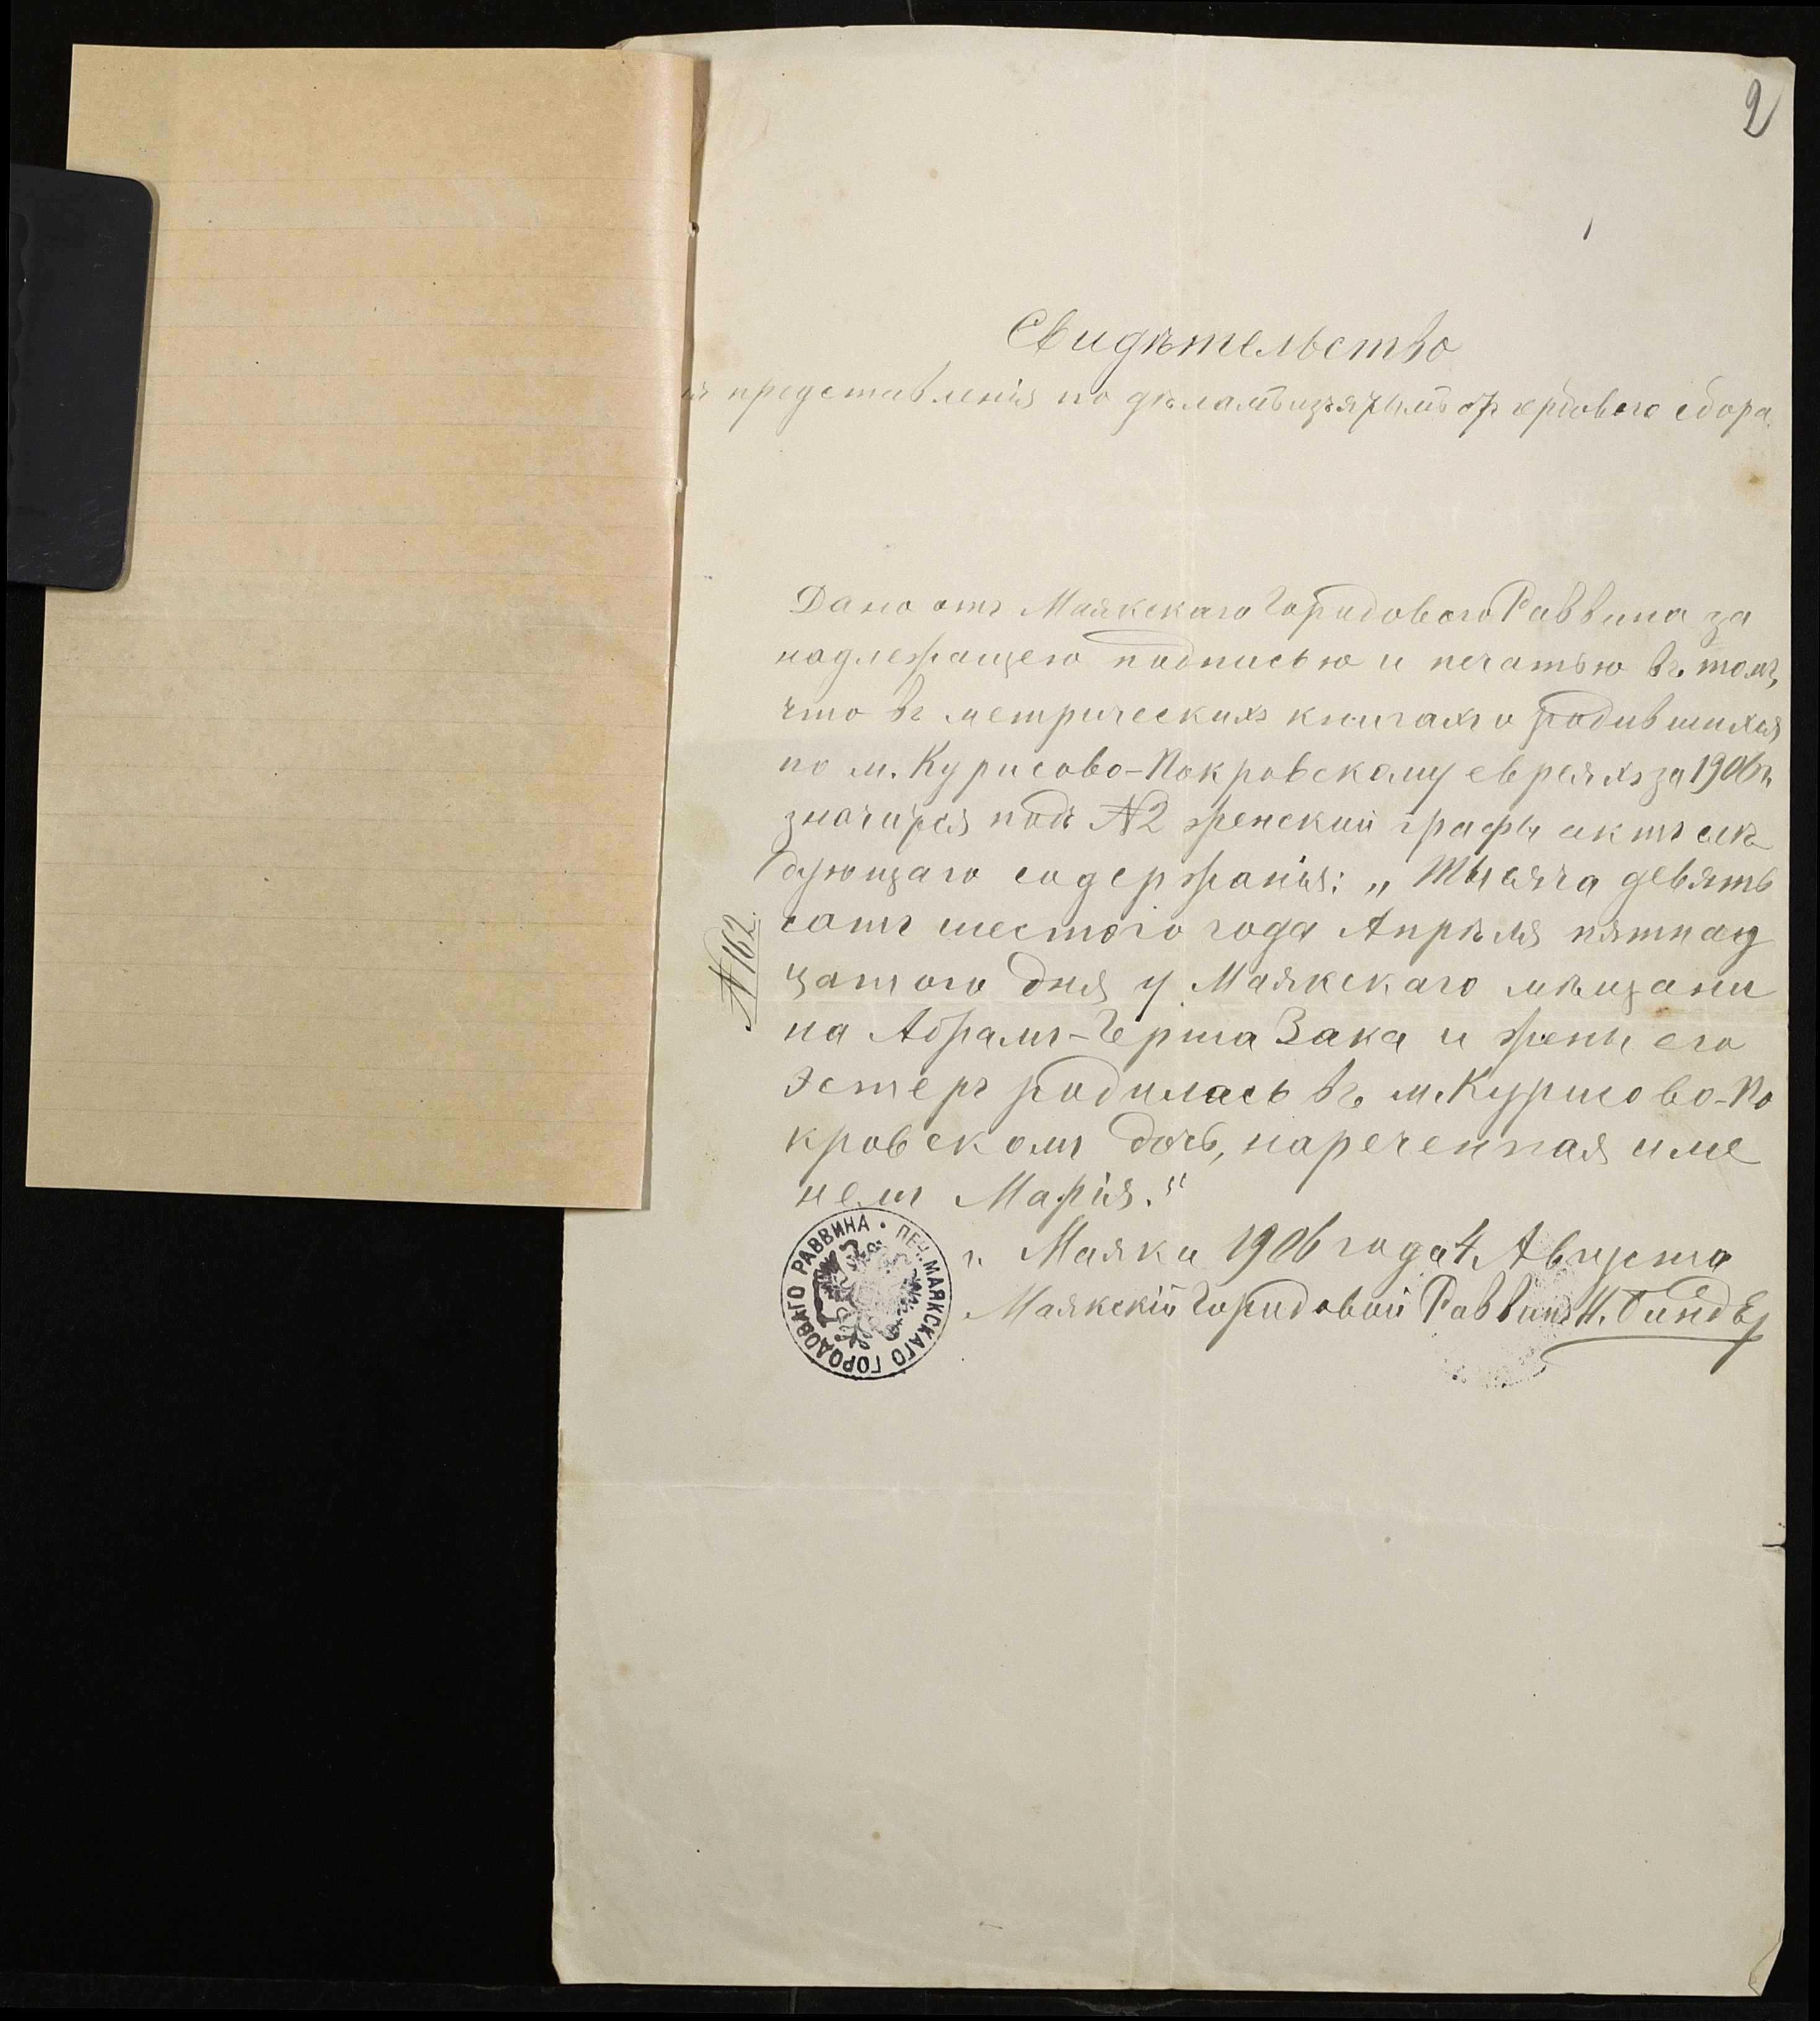 2
Свидѣтельство
представленія по дѣламъ изъятымъ отъ гербоваго сбора.
Дано отъ Маякскаго Городоваго Раввина за
надлежащею подписью и печатью въ томъ,
что въ метрическихъ книгахъ о родившихся
по м. Курисово-Покровскому евреяхъ за 1906 г.
значится подъ №2 женской графы актъ слѣ
дующаго содержанія: „Тысяча девять
сотъ шестого года Апрѣля пятнад
цатого дня у Маякскаго мѣщани
на Абрамъ-Герша Зака и жены его
Эстеръ родилась въ м. Курисово-По
кровскомъ дочь, нареченная име
немъ Марія."
№ 162.
г. Маяки 1906 года 4 Августа
Маякскій Городовой Раввинъ
ПЕЧ. МАЯКСКАГО ГОРОДОВАГО РАВВИНА